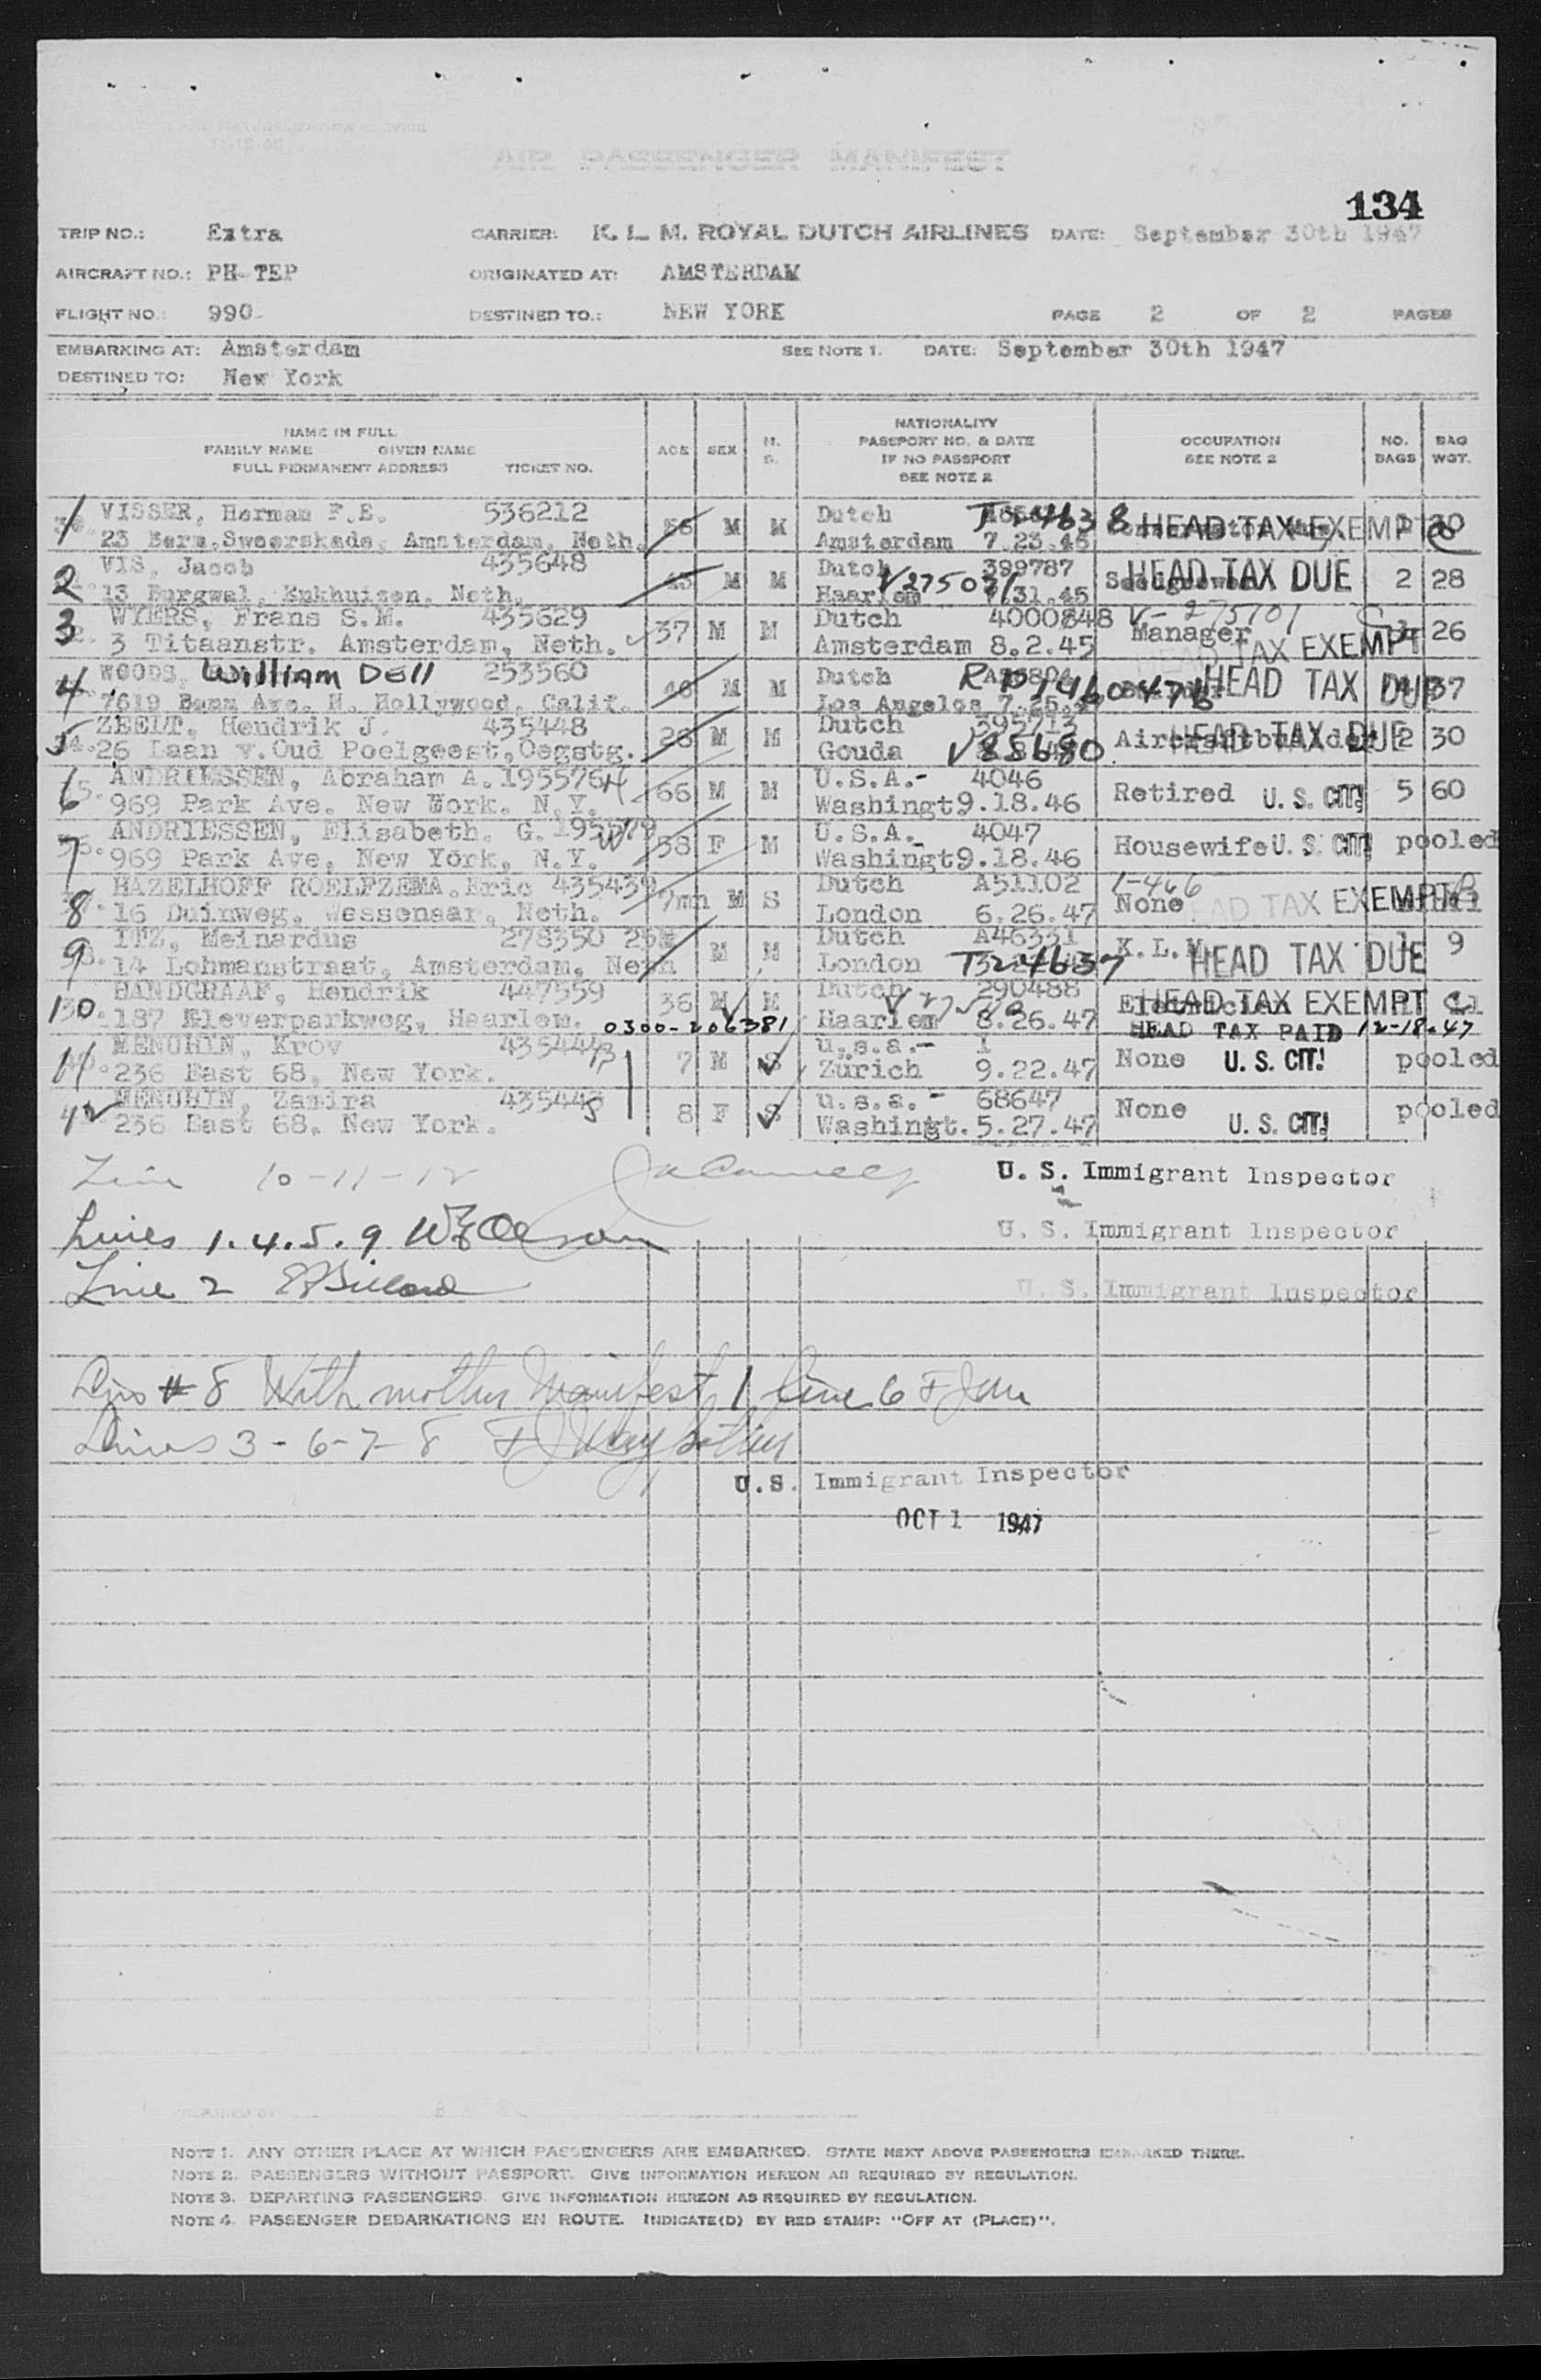 AIR PASSENGER MANIFEST
134
TRIP NO.: Extra CARRIER: K. L. M. ROYAL DUTCH AIRLINES DATE: September 30th 1947
AIRCRAFT NO.: PH-TEP ORIGINATED AT: AMSTERDAM
FLIGHT NO.: 990- DESTINED TO.: NEW YORK PAGE 2 OF 2 PAGES
EMBARKING AT: Amsterdam SEE NOTE 1. DATE: September 30th 1947
DESTINED TO: New York
NAME IN FULL
FAMILY NAME GIVEN NAME
FULL PERMANENT ADDRESS TICKET NO.
AGE SEX M. S.
NATIONALITY
PASSPORT NO. & DATE
IF NO PASSPORT
SEE NOTE 2
OCCUPATION
SEE NOTE 2
NO. BAGS
BAG WGT.
1 VISSER, Herman F.E. 536212 56 M M Dutch HEAD TAX EXEMPT
23 Herm.Swoerskade, Amsterdam, Neth. Amsterdam 7.23.46
2 VIS, Jacob 435648 43 M M Dutch 399787 HEAD TAX DUE 2 28
13 Burgwal, Enkhuizen, Neth. Haarlem
3 WYERS, Frans S.M. 435629 37 M M Dutch 4000848 V-275701 Manager 26
3 Titaanstr. Amsterdam, Neth. Amsterdam 8.2.45 HEAD TAX EXEMPT
4 WOODS, William Dell 253560 46 M M Dutch HEAD TAX DUE 37
7619 Bonn Ave. N. Hollywood, Calif. Los Angelos
5 ZEELT, Hendrik J. 435448 26 M M Dutch HEAD TAX DUE 2 30
26 Laan v.Oud Poelgeest, Oegstg. Gouda V85680
6 ANDRIESSEN, Abraham A. 195576 66 M M U.S.A.- 4046 Retired U. S. CIT! 5 60
969 Park Ave. New York. N.Y. Washingt 9.18.46
7 ANDRIESSEN, Elisabeth. G. 195579 58 F M U.S.A.- 4047 Housewife U. S. CIT! pooled
969 Park Ave, New York, N.Y. Washingt 9.18.46
8 HAZELHOFF ROELFZEMA. Eric 435439 7mn M S Dutch A51102 None HEAD TAX EXEMPT
16 Duinweg, Wassenaar, Neth. London 6.26.47
9 ITZ, Meinardus 278350 M M Dutch A46331 K.L.M. HEAD TAX DUE 1 9
14 Lohmanstraat, Amsterdam, Neth London T324637
10 HANDGRAAF, Hendrik 447559 36 M M Dutch 290488 Electrician HEAD TAX EXEMPT
187 Kleverparkweg, Haarlem. 0300-206381 Haarlem 8.26.47 HEAD TAX PAID 12-18-47
11 MENUHIN, Krov 435444 7 M S u.s.a.- 1 None U. S. CIT! pooled
236 East 68, New York. Zürich 9.22.47
12 MENUHIN, Zamira 435443 8 F S u.s.a.- 68647 None U. S. CIT! pooled
236 East 68, New York. Washingt. 5.27.47
Line 10-11-12 U. S. Immigrant Inspector
Lines 1.4.5.9 U. S. Immigrant Inspector
Line 2 U. S. Immigrant Inspector
# 8 With mother Manifest 1 line 6
Lines 3-6-7-8
U.S. Immigrant Inspector
OCT 1 1947
PREPARED BY
NOTE 1. ANY OTHER PLACE AT WHICH PASSENGERS ARE EMBARKED. STATE NEXT ABOVE PASSENGERS EMBARKED THERE.
NOTE 2. PASSENGERS WITHOUT PASSPORT. GIVE INFORMATION HEREON AS REQUIRED BY REGULATION.
NOTE 3. DEPARTING PASSENGERS. GIVE INFORMATION HEREON AS REQUIRED BY REGULATION.
NOTE 4. PASSENGER DEBARKATIONS EN ROUTE. INDICATE(D) BY RED STAMP: "OFF AT (PLACE)".